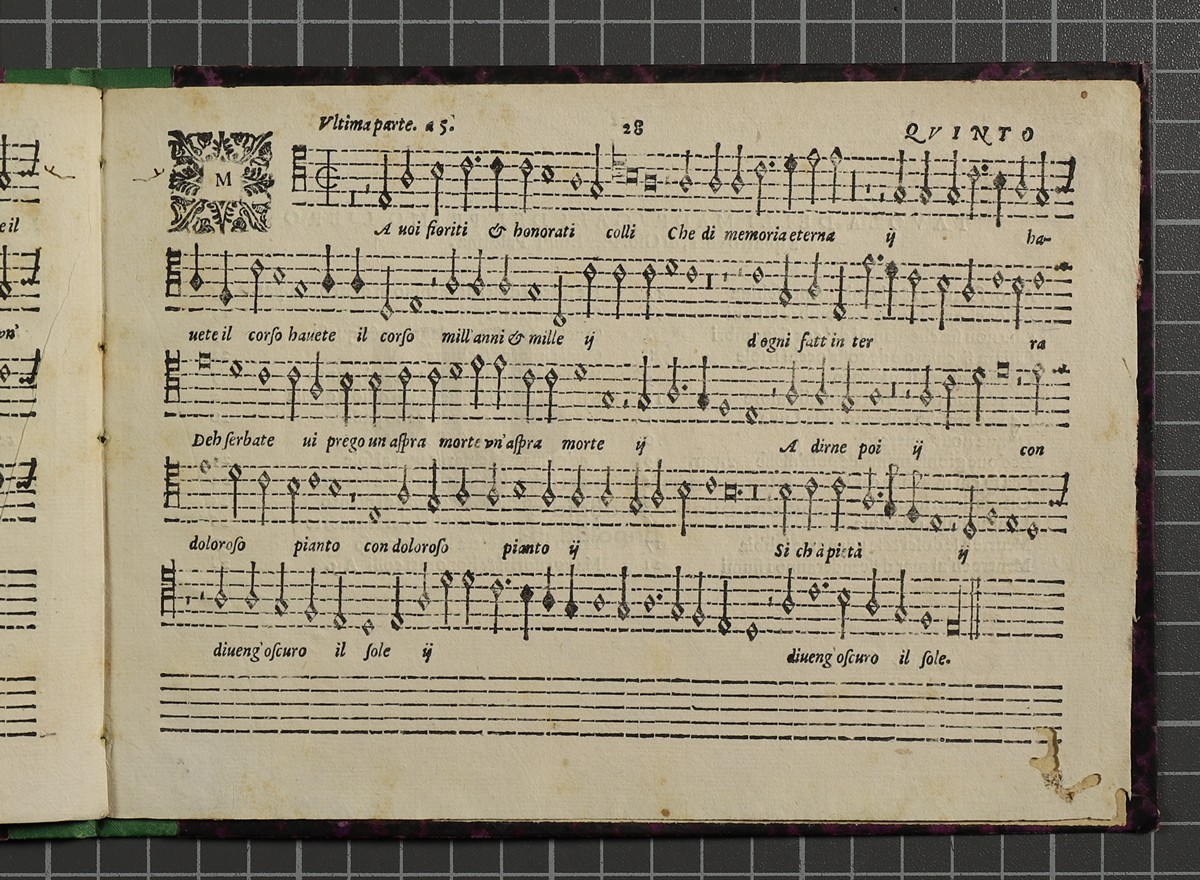 Vltima parte. a 5.
28
QVINTO
M
A uoi fioriti & honorati colli Che di memoria eterna ij ha-
uete il corſo hauete il corſo mill'anni & mille ij d'ogni fatt'in ter ra
Deh ſerbate ui prego un aſpra morte vn'aſpra morte ij A dirne poi ij con
doloroſo pianto con doloroſo pianto ij Si ch'à pietà ij
diueng'oſcuro il ſole ij diueng'oſcuro il ſole.
e il
vn'